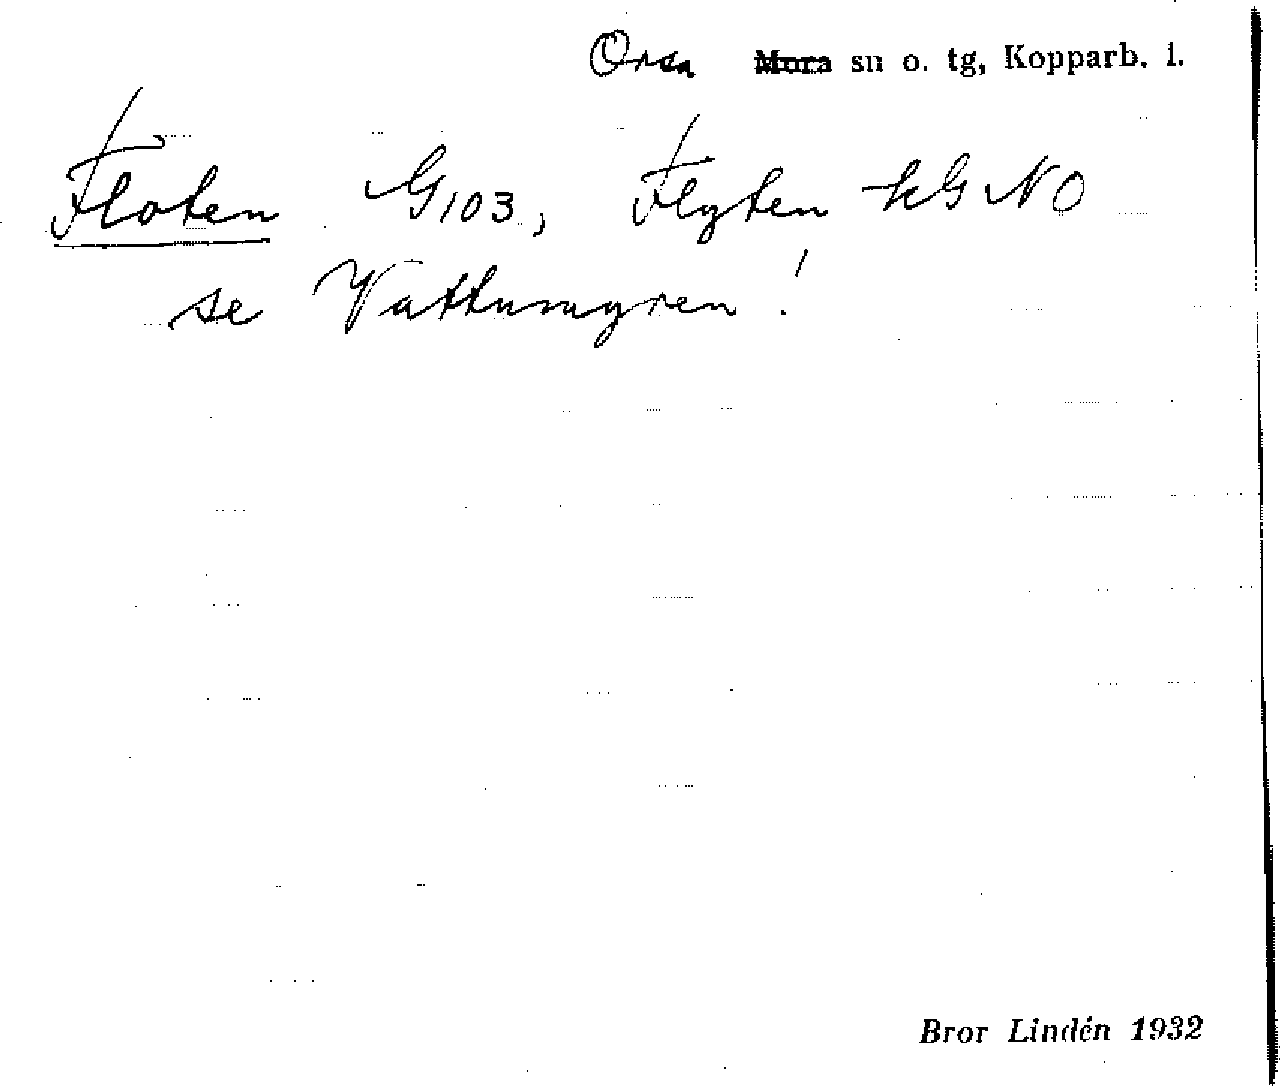 Orsa Mora sn o. tg, Kopparb. l.
Floten G103, Flyten kG NO
se Vattumyren!
Bror Lindén 1932